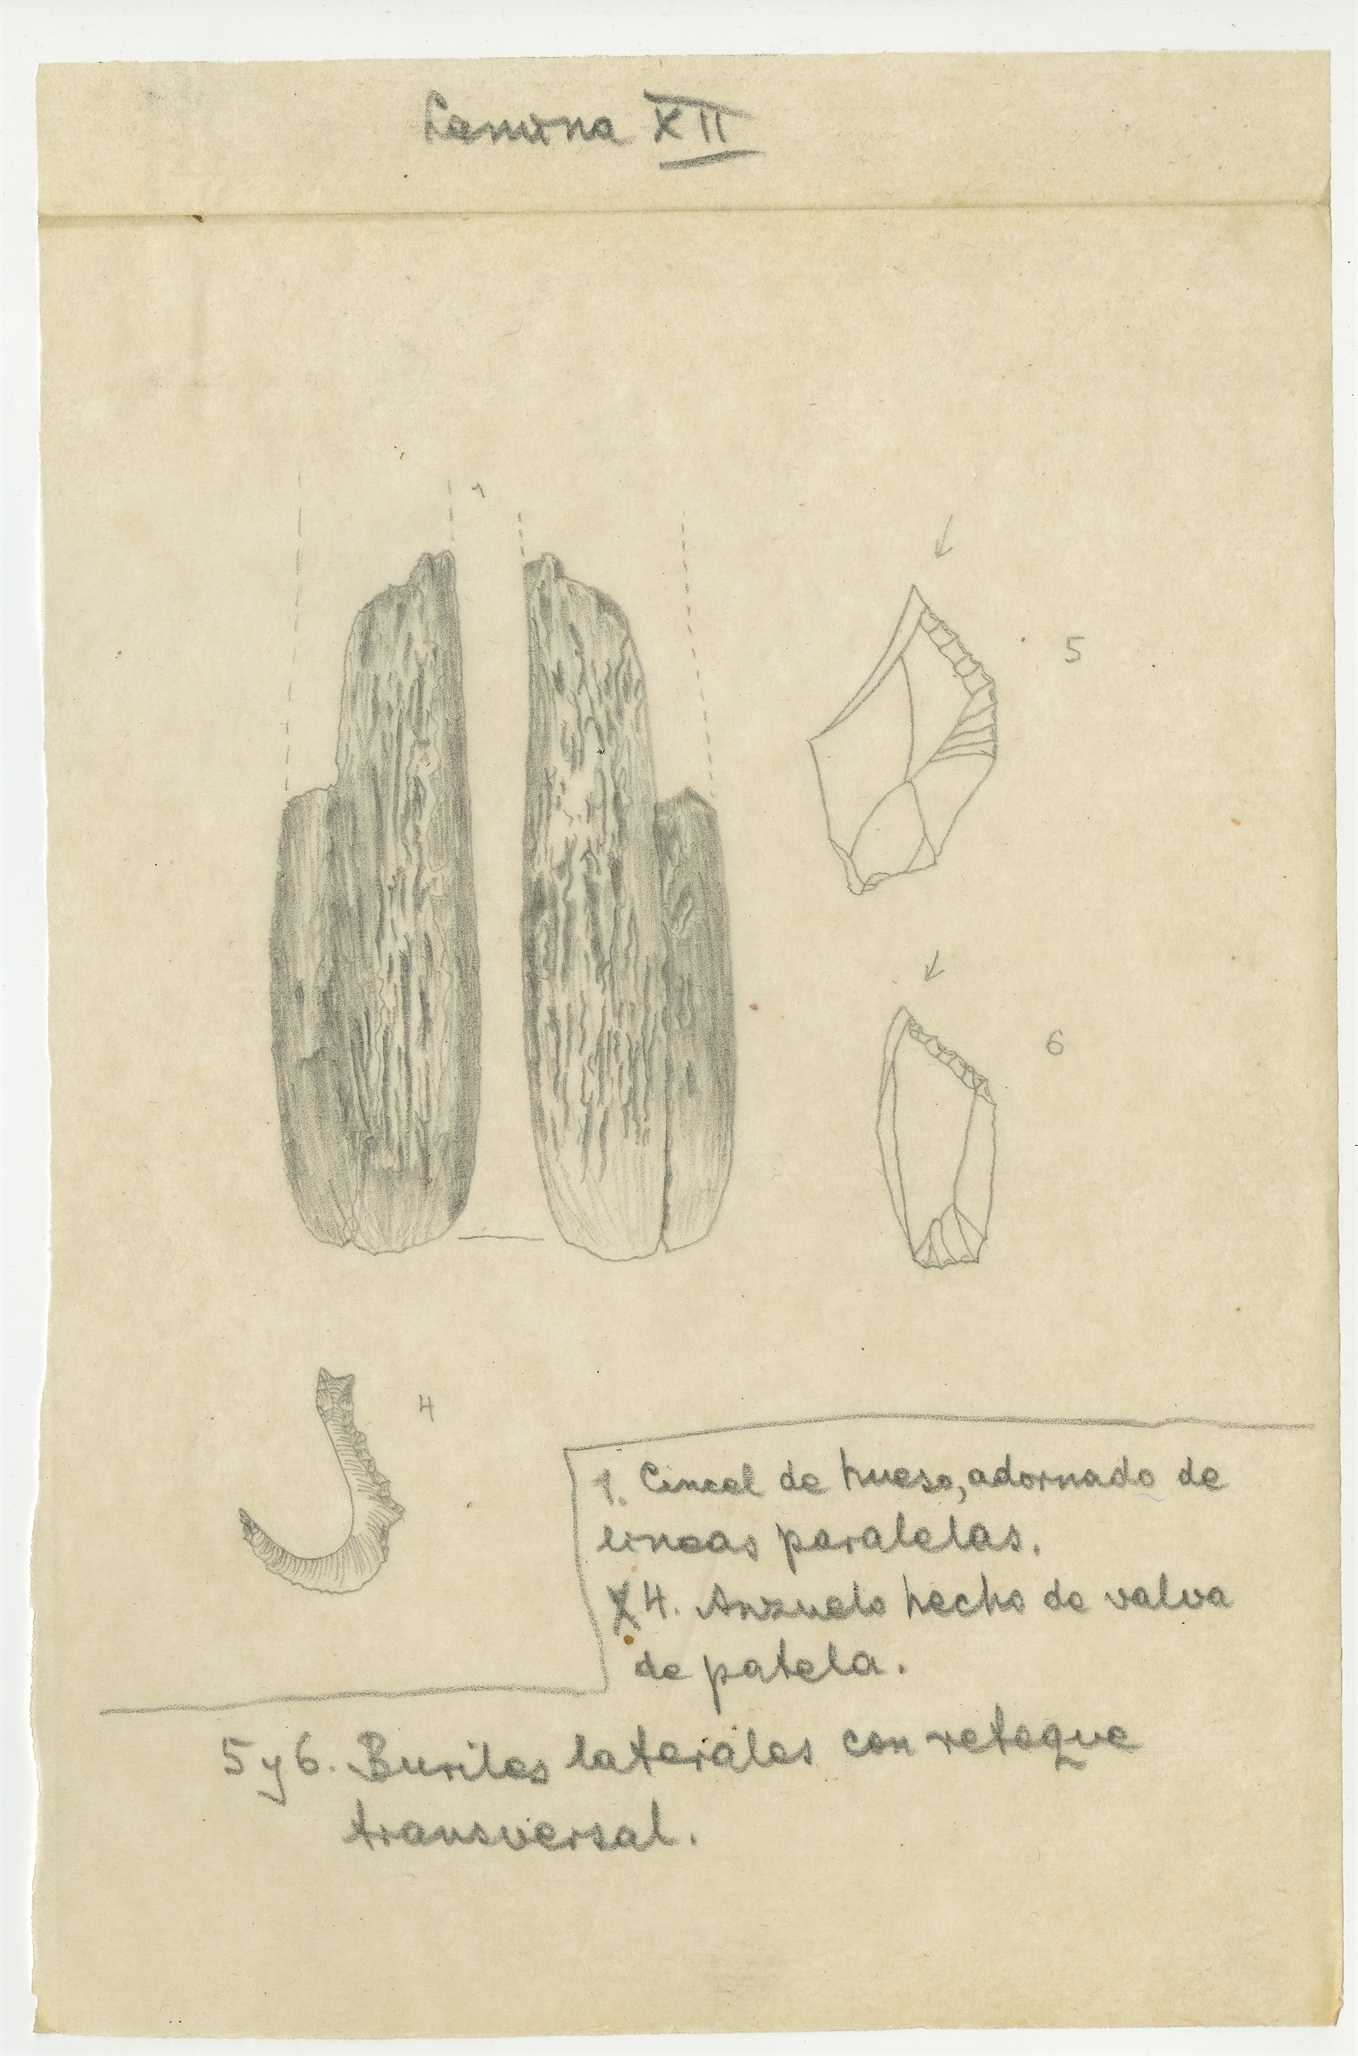 Lamina XII
1
5
6
4
1. Cincel de hueso, adornado de
lineas paralelas.
4. Anzuelo hecho de valva
de patela.
5 y 6. Buriles laterales con retoque
transversal.